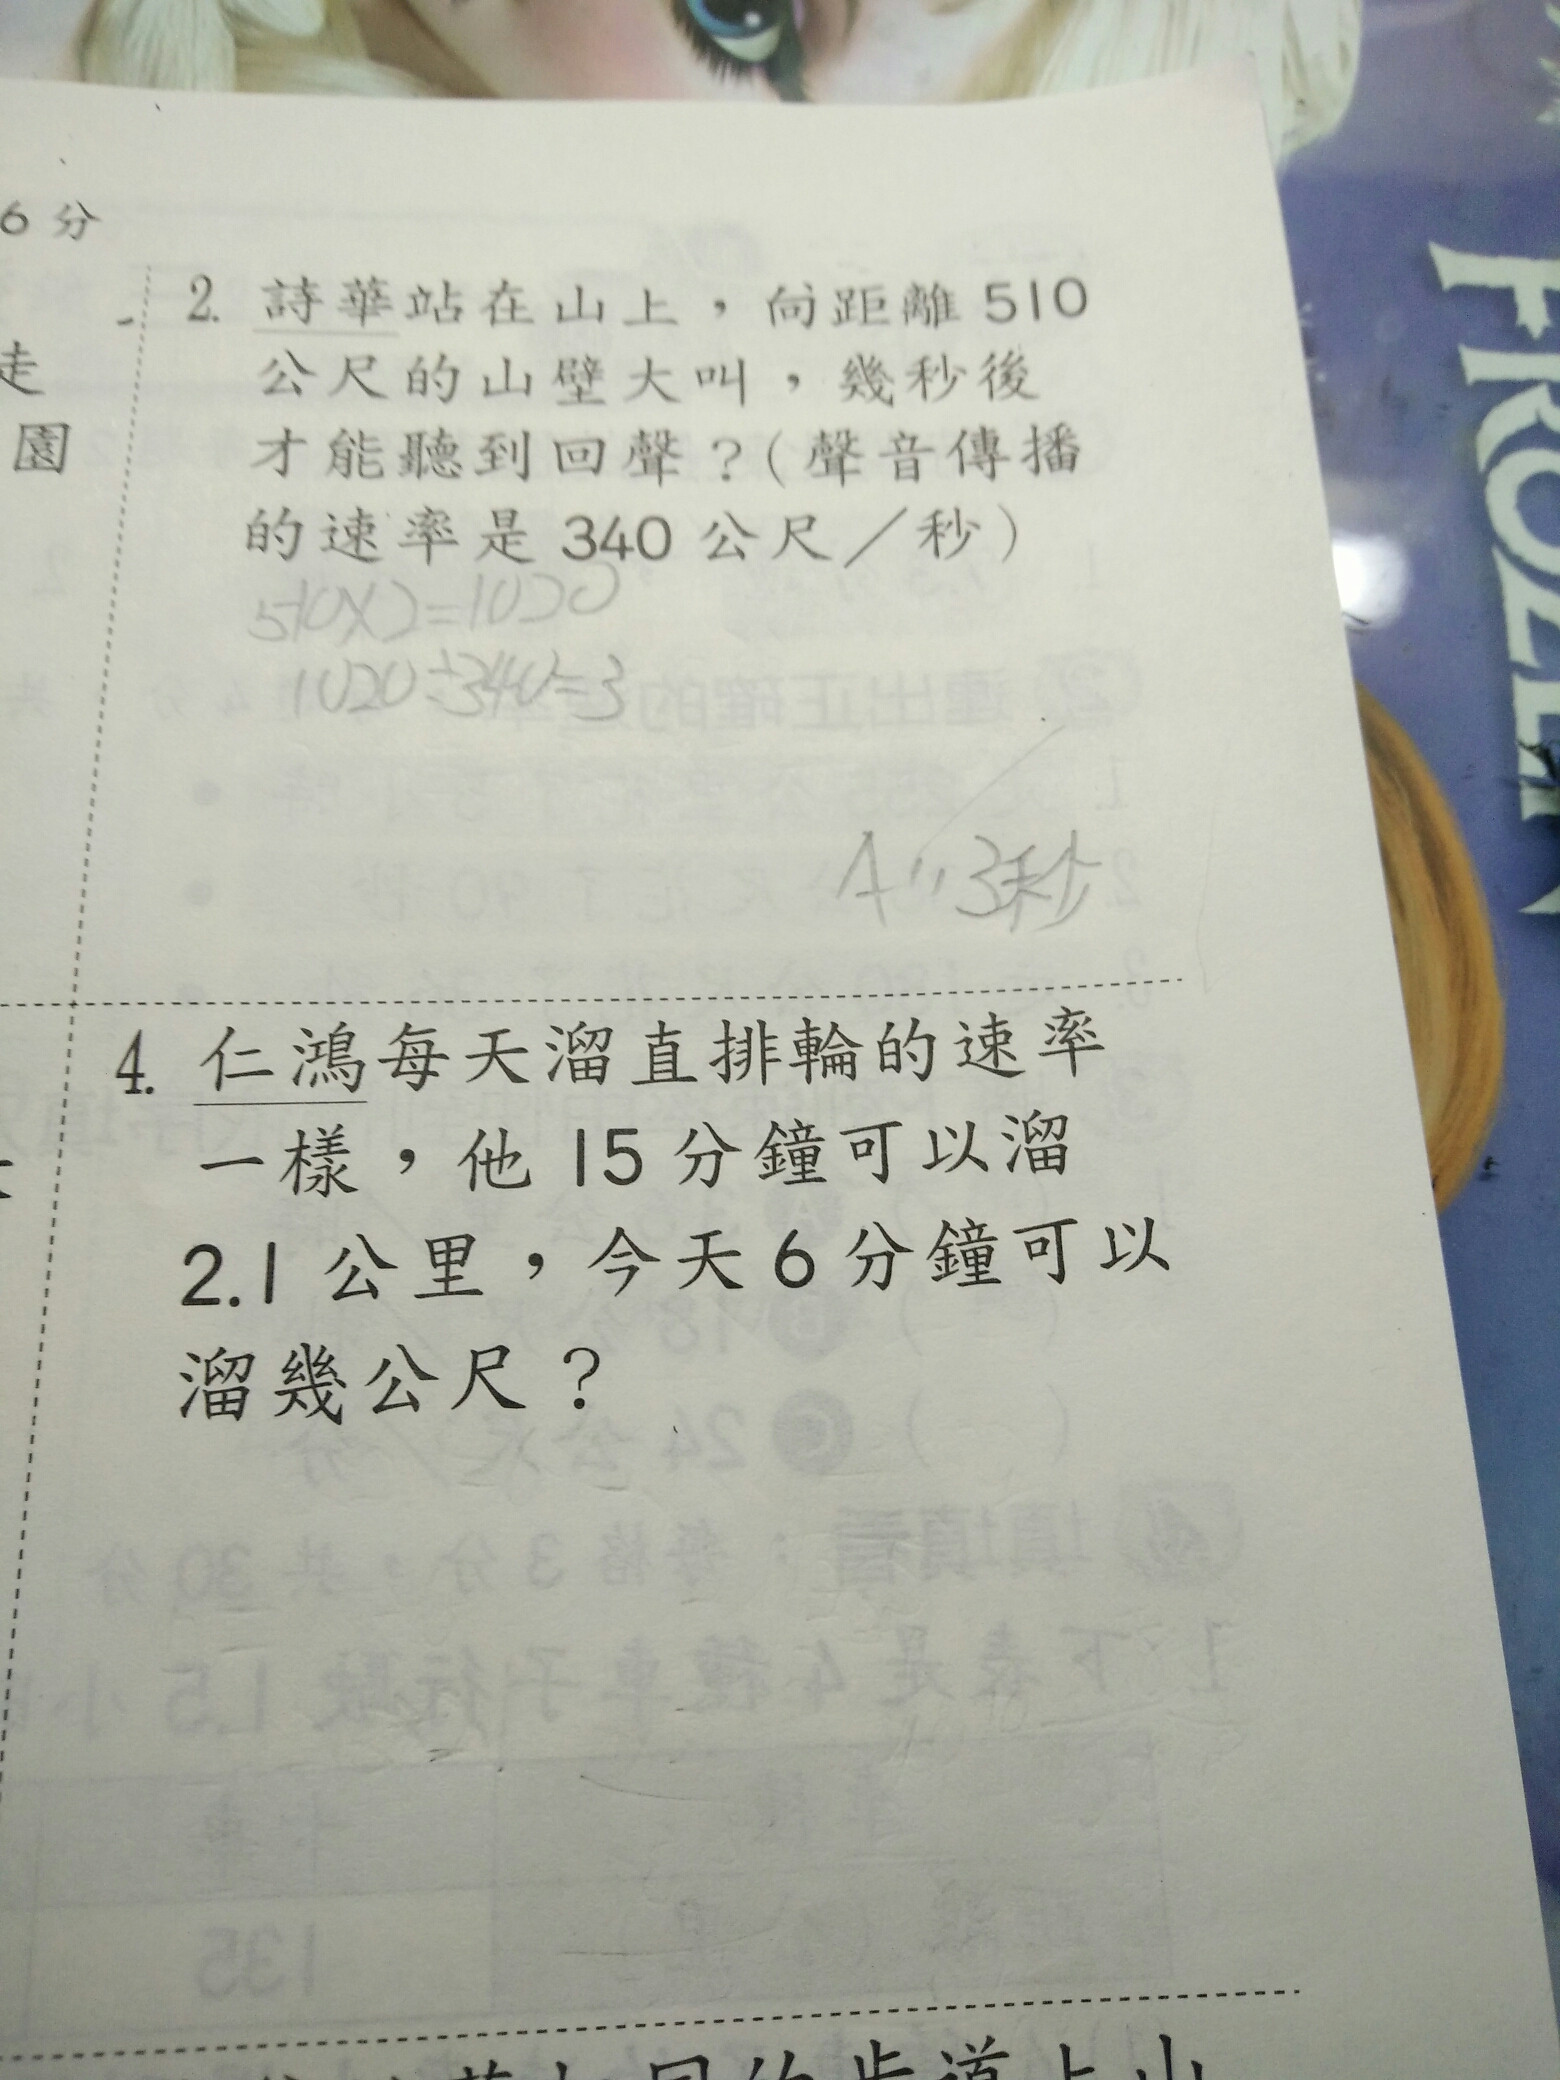 6 分
走
園
2. 詩華站在山上，向距離 510
公尺的山壁大叫，幾秒後
才能聽到回聲？(聲音傳播
的速率是 340 公尺／秒)
510×2=1020
1020÷340=3
A:3秒
4. 仁鴻每天溜直排輪的速率
一樣，他 15 分鐘可以溜
2.1 公里，今天 6 分鐘可以
溜幾公尺？
FROZEN